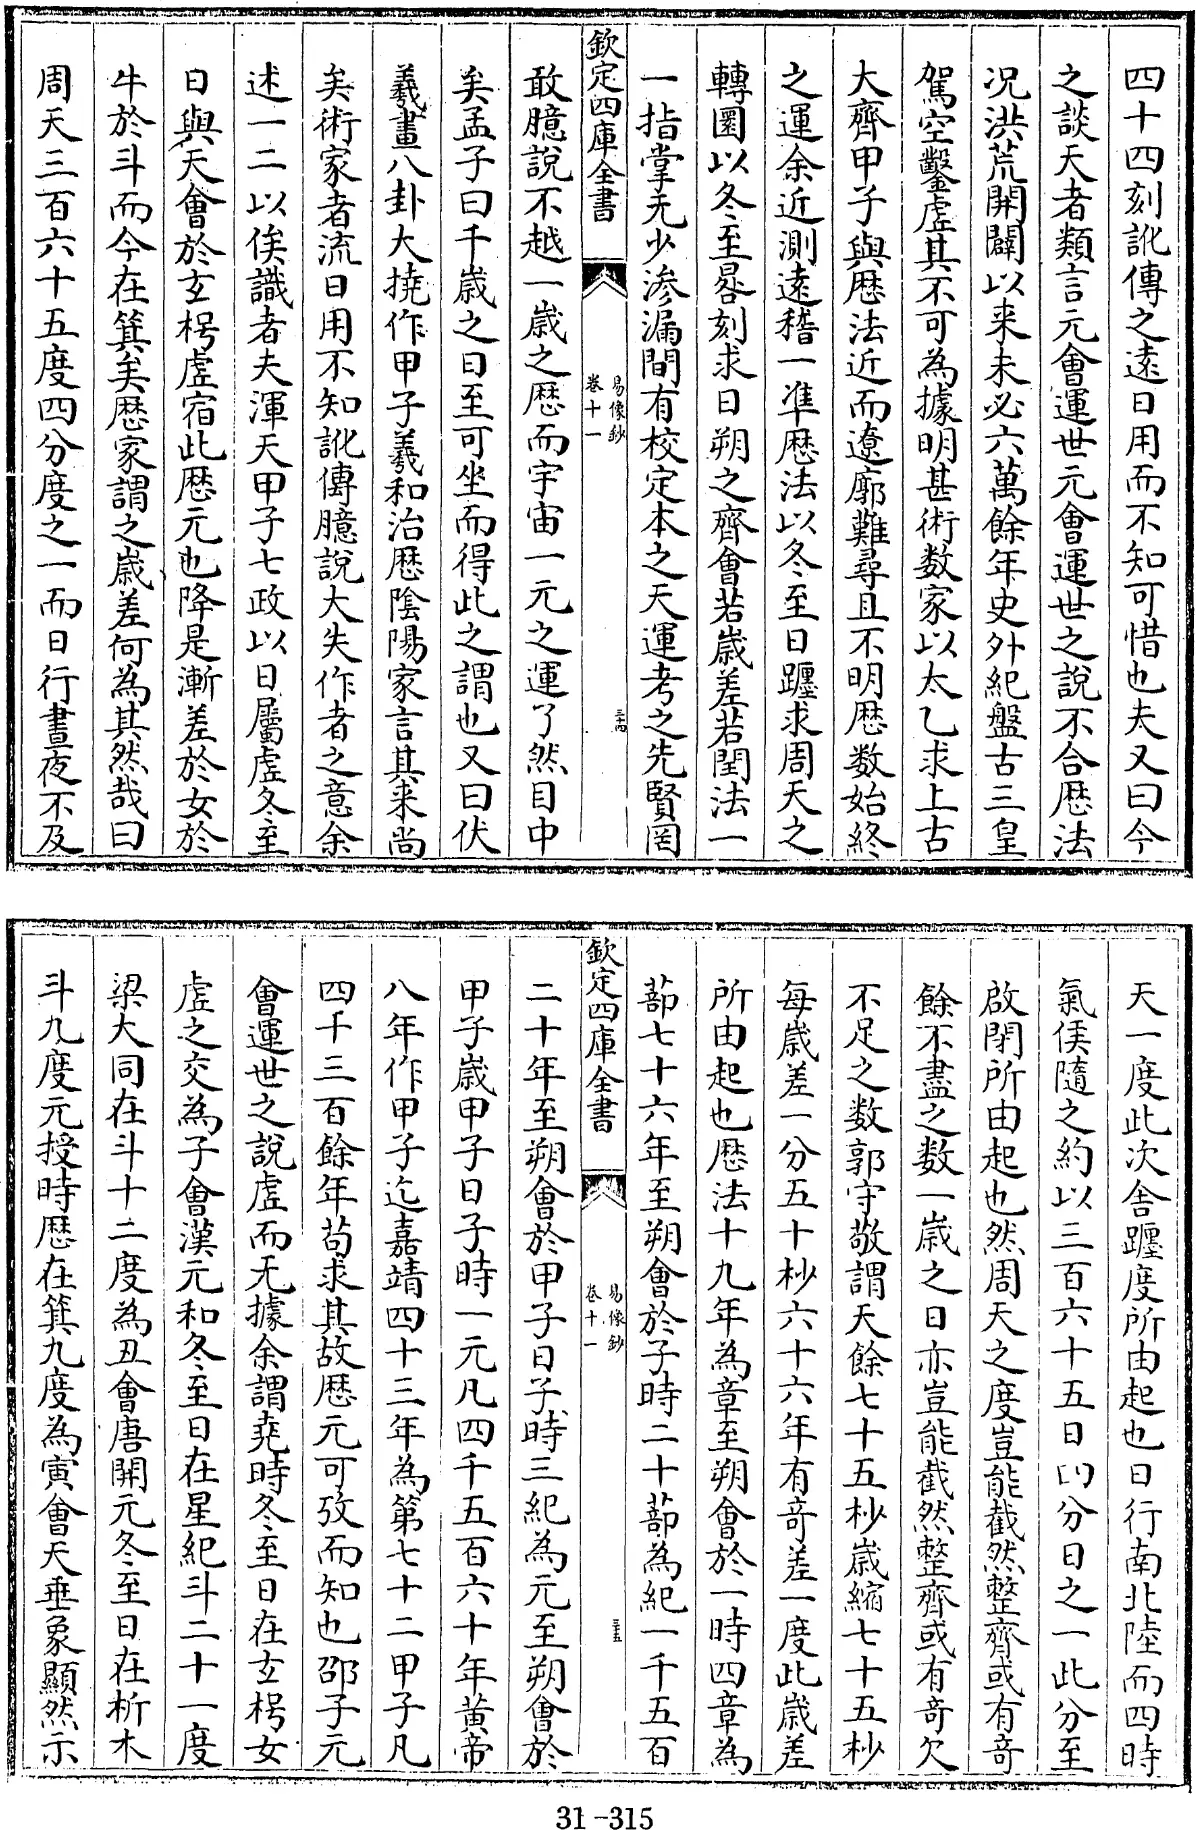 四十四刻訛傳之遠日用而不知可惜也夫又曰今
之談天者類言元會運世元會運世之說不合歴法
况洪荒開闢以来未必六萬餘年史外紀盤古三皇
駕空鑿虚其不可為據明甚術数家以太乙求上古
大齊甲子與歴法近而遼廓難尋且不明歴数始終
之運余近測遠稽一準歴法以冬至日躔求周天之
轉圜以冬至晷刻求日朔之齊會若嵗差若閏法一
一指掌无少渗漏間有校定本之天運考之先賢罔
欽定四庫全書
易像鈔
卷十一
三十四
敢臆說不越一嵗之歴而宇宙一元之運了然目中
矣孟子曰千嵗之日至可坐而得此之謂也又曰伏
羲畫八卦大撓作甲子羲和治歴陰陽家言其来尚
矣術家者流日用不知訛傳臆說大失作者之意余
述一二以俟識者夫渾天甲子七政以日屬虚冬至
日與天會於玄枵虚宿此歴元也降是漸差於女於
牛於斗而今在箕矣歴家謂之嵗差何為其然哉曰
周天三百六十五度四分度之一而日行晝夜不及
天一度此次舍躔度所由起也日行南北陸而四時
氣候隨之約以三百六十五日四分日之一此分至
啟閉所由起也然周天之度豈能截然整齊或有奇
餘不盡之数一嵗之日亦豈能截然整齊或有奇欠
不足之数郭守敬謂天餘七十五杪嵗縮七十五杪
每嵗差一分五十杪六十六年有奇差一度此嵗差
所由起也歴法十九年為章至朔會於一時四章為
蔀七十六年至朔會於子時二十蔀為紀一千五百
欽定四庫全書
易像鈔
卷十一
三十五
二十年至朔會於甲子日子時三紀為元至朔會於
甲子嵗甲子日子時一元凡四千五百六十年黃帝
八年作甲子迄嘉靖四十三年為第七十二甲子凡
四千三百餘年苟求其故歴元可攷而知也邵子元
會運世之說虚而无據余謂堯時冬至日在玄枵女
虚之交為子會漢元和冬至日在星紀斗二十一度
梁大同在斗十二度為丑會唐開元冬至日在析木
斗九度元授時歴在箕九度為寅會天垂象顯然示
31-315